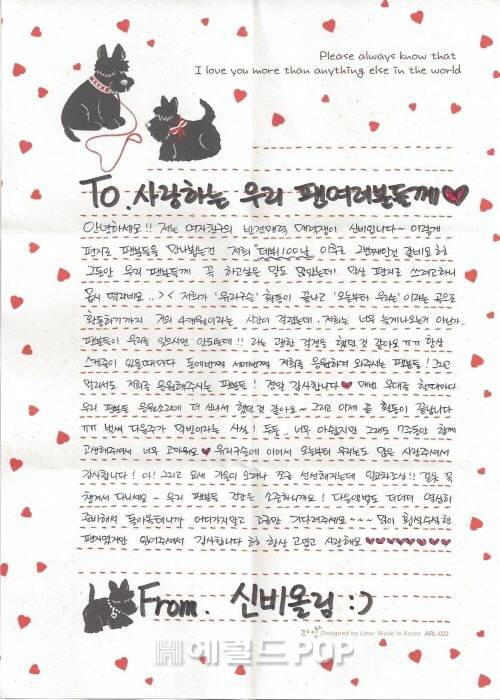 Please always know that
I love you more than anything else in the world
To. 사랑하는 우리 팬여러분들께♥
안녕하세요!! 저는 여자친구의 반전매력 매력쟁이 신비입니다~ 이렇게
편지로 팬분들을 만나뵙는건 저희 "데뷔100날" 이후로 2번째인것 같네요 ㅎㅎ
그동안 우리 팬분들께 꼭 하고싶은 말도 많았는데! 막상 편지로 쓰려고하니
떨리네요..>< 저희가 '유리구슬' 활동이 끝나고 '오늘부터 우리는' 이라는 곡으로
활동하기까지 거의 4개월이라는 시간이 걸렸는데. 저희는 너무 늦게나오는게 아닌가.
팬분들이 우리를 잊으시면 안되는데!! 라는 괜한 걱정을 했던것 같아요 ㅠㅠ 항상
스케줄이 있을때마다 두번째 세번째 저희를 응원하러 와주시는 팬분들! 그리고
멀리서도 저희를 응원해주시는 팬분들! 정말 감사합니다♥ 매번 무대를 할때마다
우리 팬분들 응원소리에 더 신나서 했던것 같아요~ 그리고 이제 곧 활동이 끝납니다
ㅠㅠ 벌써 다음주가 막방이라는 사실! 두둥.. 너무 아쉽지만 그래도 7주동안 함께
고생해주셔서 너무 고마워요♥ 유리구슬에 이어서 오늘부터 우리는도 많은 사랑주셔서
감사합니다! 아! 그리고 요새 가을이 오려나 쪼금 선선해지는데 일교차조심!! 겉옷 꼭
챙겨서 다니세요~ 우리 팬분들 건강은 소중하니까요! 다음앨범도 더더더 열심히
준비해서 돌아올테니까 어디가지말고 조금만 기다려주세요~~~ 많이 횡설수설한
편지였지만 읽어주셔서 감사합니다 ㅎㅎ 항상 고맙고 사랑해요 ♥♥♥♥♥♥♥
From. 신비올림 :)
Designed by Lime Made in Korea ARL-022
헤럴드POP